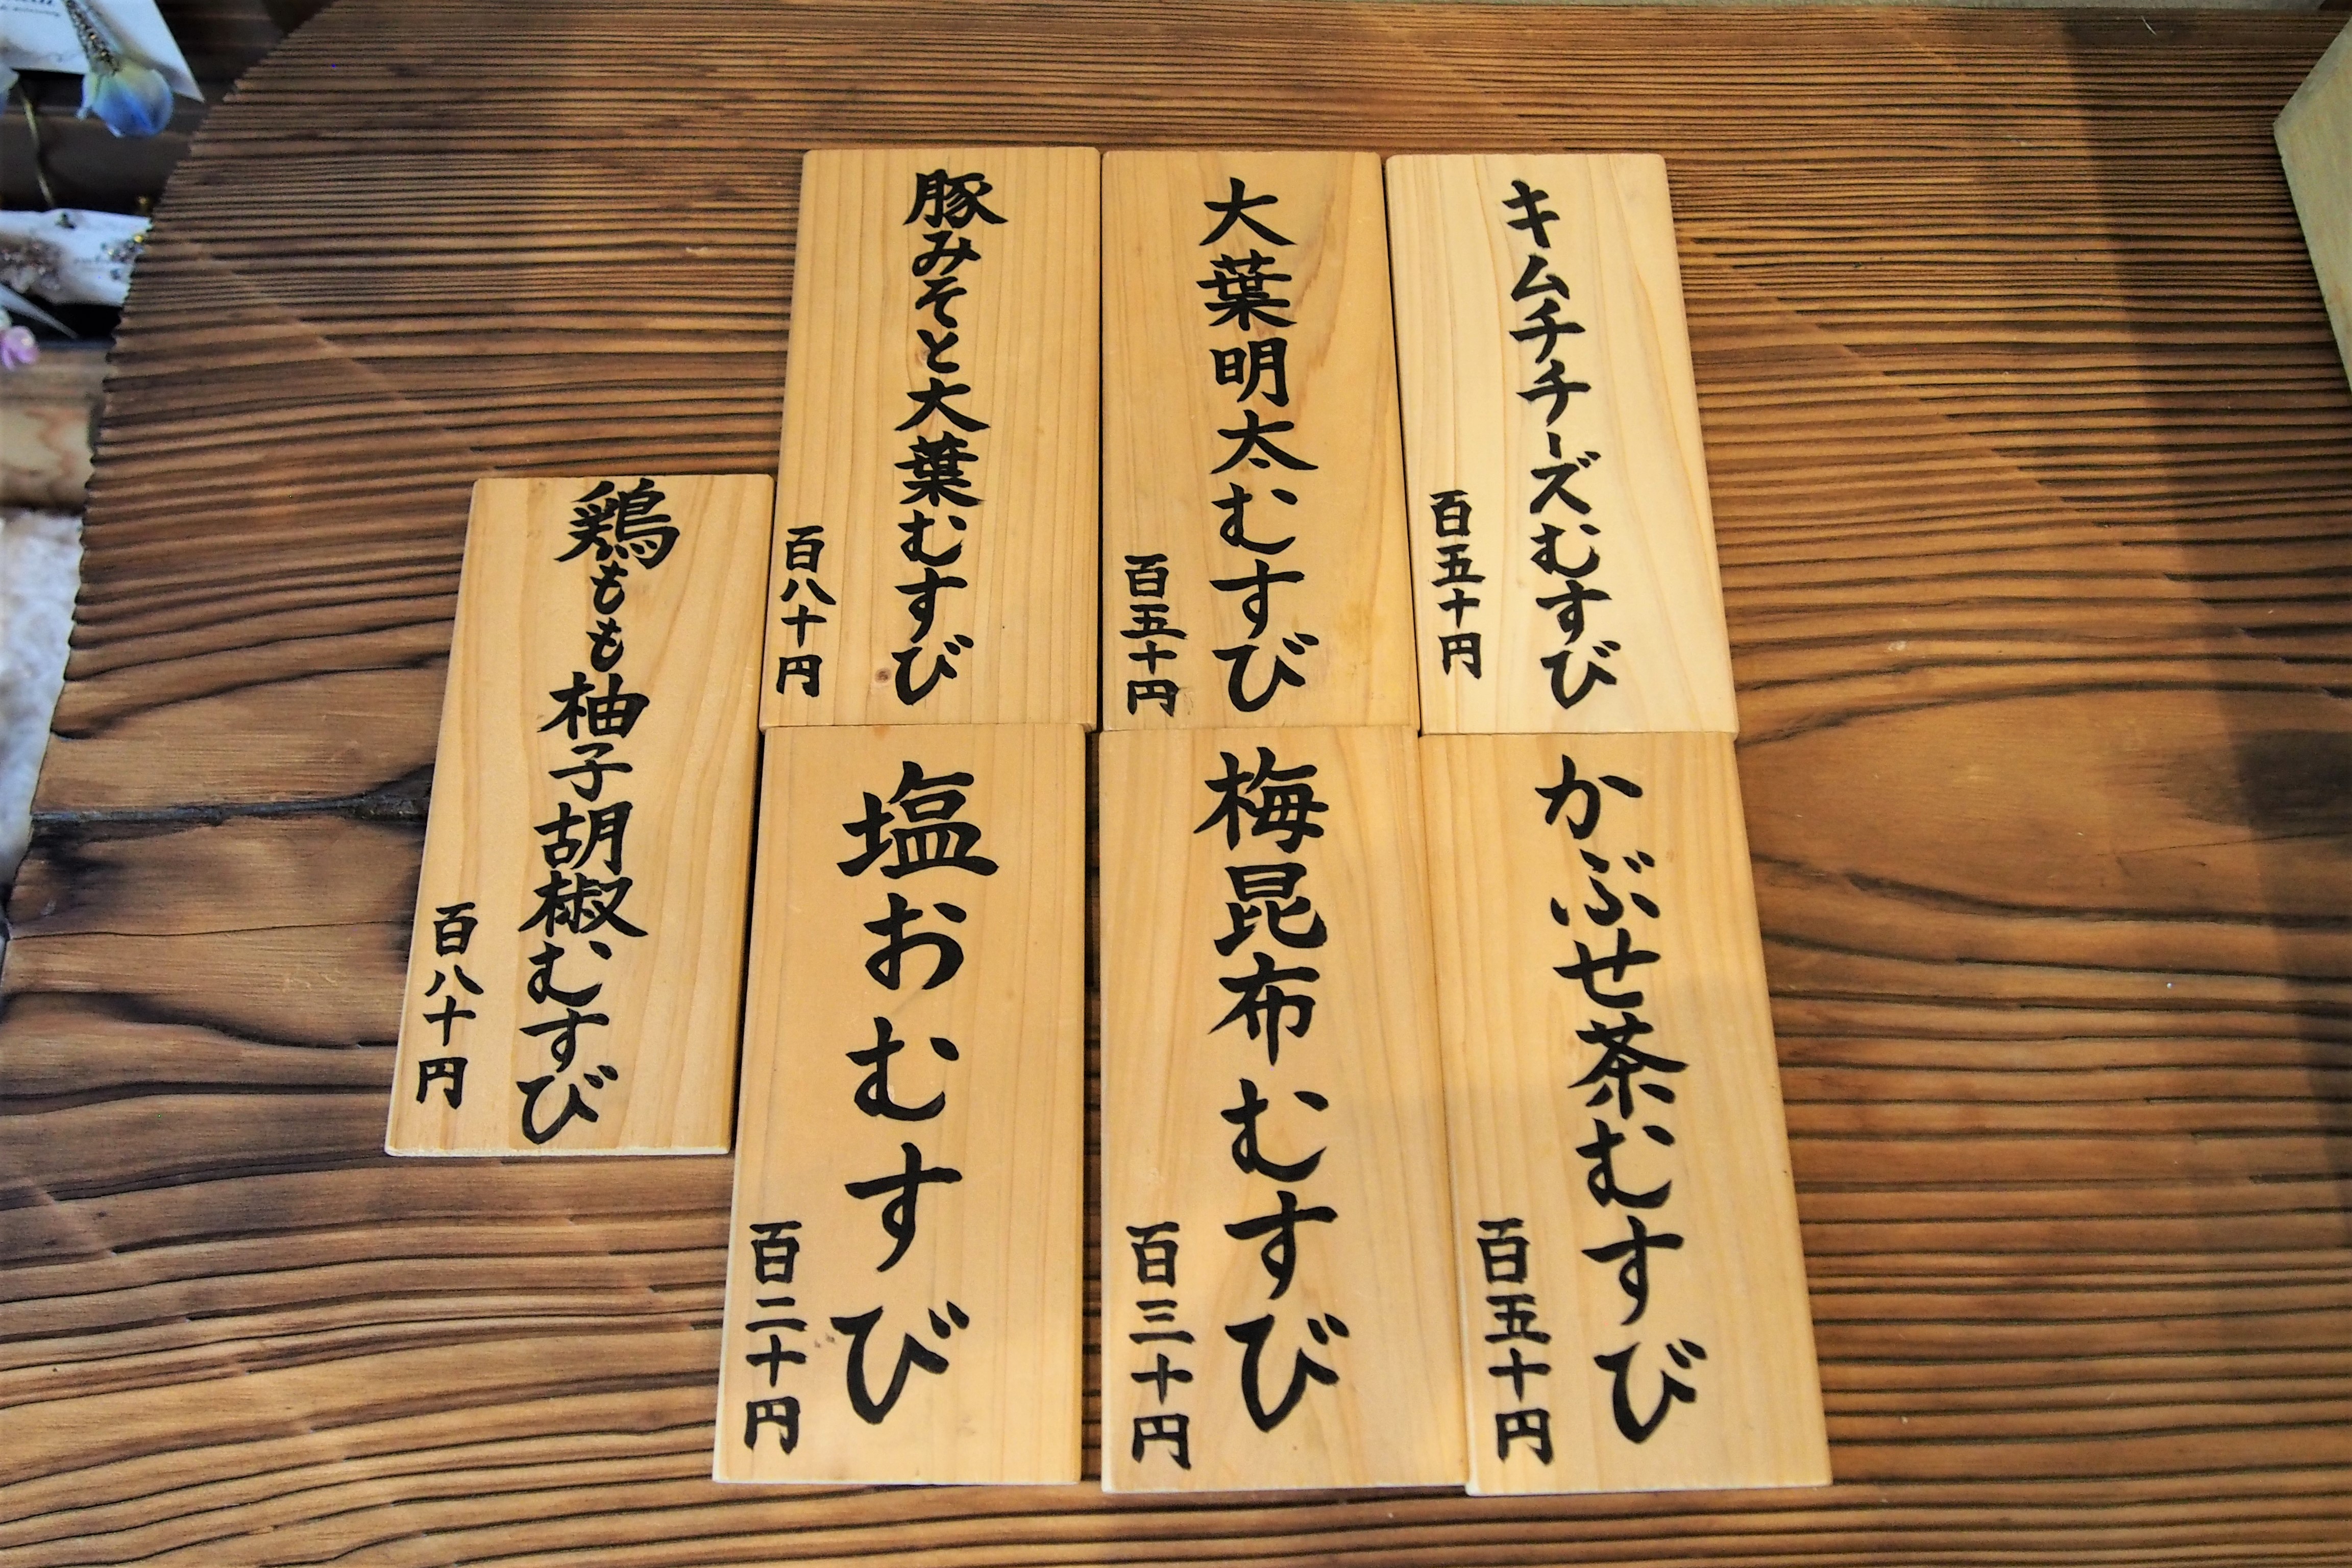 キムチチーズむすび
百五十円
大葉明太むすび
百五十円
豚みそと大葉むすび
百八十円
かぶせ茶むすび
百五十円
梅昆布むすび
百三十円
塩おむすび
百二十円
鶏もも柚子胡椒むすび
百八十円